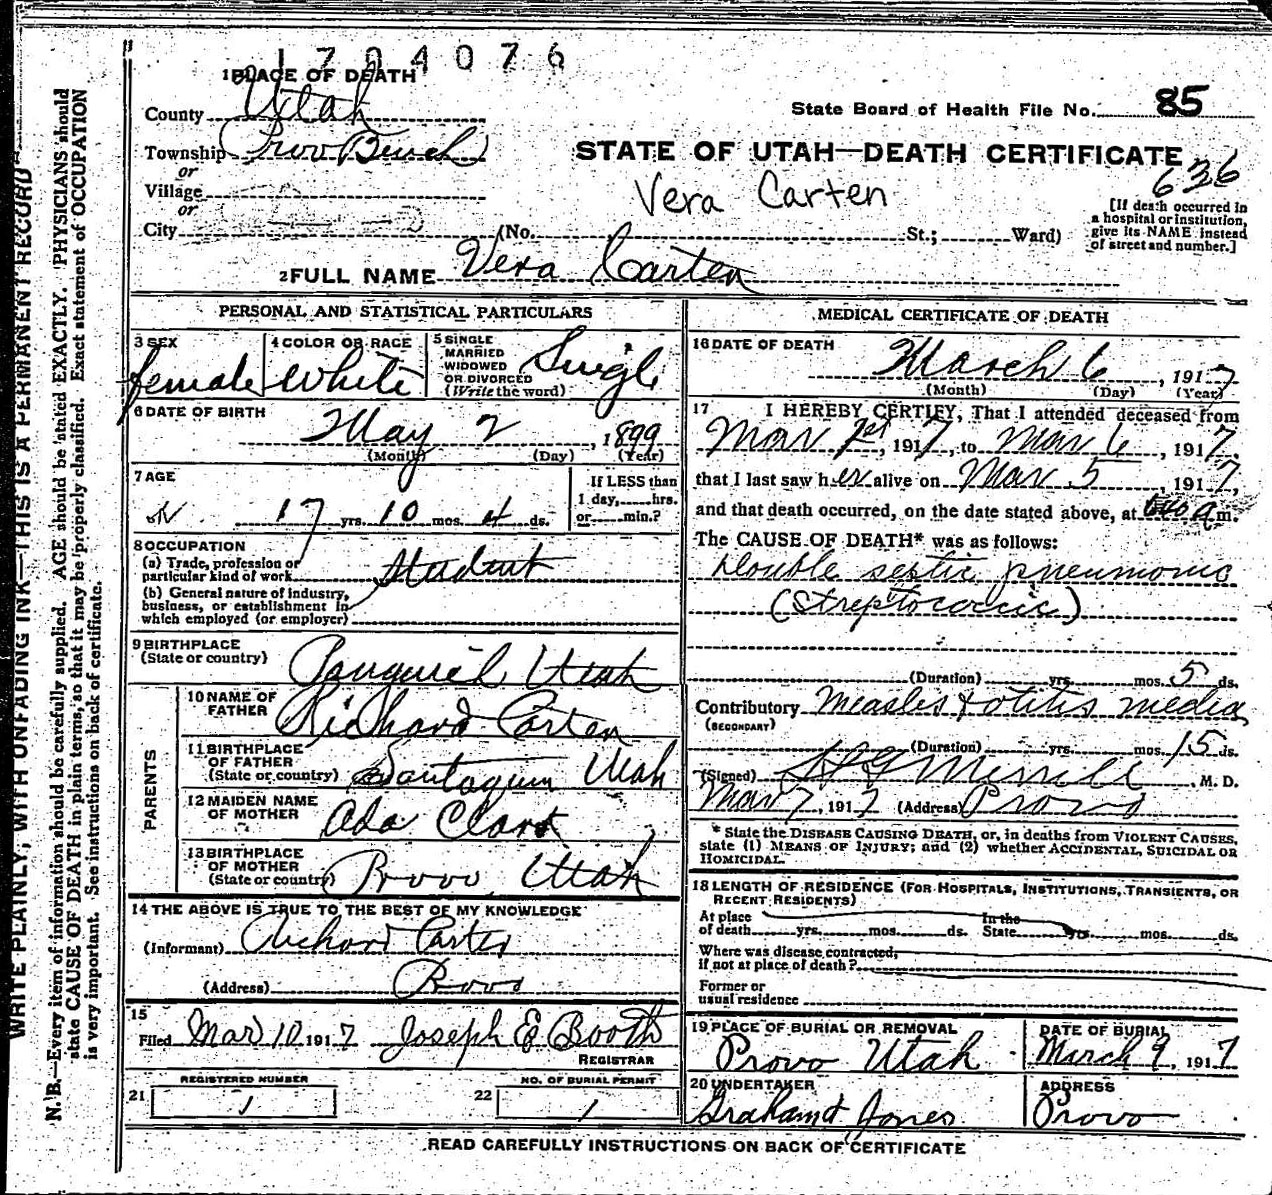 1704076
1 PLACE OF DEATH
County Utah
State Board of Health File No. 85
Township Provo Bench
or
STATE OF UTAH—DEATH CERTIFICATE
636
Village
or
Vera Carten
[If death occurred in
a hospital or institution,
give its NAME instead
of street and number.]
City (No. St.; Ward)
2 FULL NAME Vera Carten
PERSONAL AND STATISTICAL PARTICULARS
3 SEX
female
4 COLOR OR RACE
White
5 SINGLE
MARRIED
WIDOWED
OR DIVORCED
(Write the word)
Single
6 DATE OF BIRTH
May 2, 1899
(Month) (Day) (Year)
7 AGE
17 yrs. 10 mos. 4 ds.
If LESS than
1 day, hrs.
or min.?
8 OCCUPATION
(a) Trade, profession or
particular kind of work Student
(b) General nature of industry,
business, or establishment in
which employed (or employer)
9 BIRTHPLACE
(State or country) Utah
PARENTS
10 NAME OF
FATHER Richard Carten
11 BIRTHPLACE
OF FATHER
(State or country) Santaquin Utah
12 MAIDEN NAME
OF MOTHER Ada Clark
13 BIRTHPLACE
OF MOTHER
(State or country) Provo, Utah
14 THE ABOVE IS TRUE TO THE BEST OF MY KNOWLEDGE
(Informant) Richard Carter
(Address) Provo
15
Filed Mar 10 1917 Joseph E Booth
REGISTRAR
REGISTERED NUMBER
21 1
NO. OF BURIAL PERMIT
22 1
MEDICAL CERTIFICATE OF DEATH
16 DATE OF DEATH
March 6, 1917
(Month) (Day) (Year)
17 I HEREBY CERTIFY, That I attended deceased from
Mar 1st, 1917, to Mar 6, 1917.
that I last saw her alive on Mar 5, 1917,
and that death occurred, on the date stated above, at a m.
The CAUSE OF DEATH* was as follows:
Double septic pneumonia
(Streptococcic)
(Duration) yrs. mos. 5 ds.
Contributory Measles & otitis media
(SECONDARY)
(Duration) yrs. mos. 15 ds.
(Signed) Merrill M. D.
Mar 7, 1917 (Address) Provo
* State the DISEASE CAUSING DEATH, or, in deaths from VIOLENT CAUSES,
state (1) MEANS OF INJURY; and (2) whether ACCIDENTAL, SUICIDAL OR
HOMICIDAL.
18 LENGTH OF RESIDENCE (FOR HOSPITALS, INSTITUTIONS, TRANSIENTS, OR
RECENT RESIDENTS)
At place In the
of death yrs. mos. ds. State yrs. mos. ds.
Where was disease contracted,
if not at place of death?
Former or
usual residence
19 PLACE OF BURIAL OR REMOVAL
Provo Utah
DATE OF BURIAL
March 9, 1917
20 UNDERTAKER
Graham & Jones
ADDRESS
Provo
READ CAREFULLY INSTRUCTIONS ON BACK OF CERTIFICATE
WRITE PLAINLY, WITH UNFADING INK—THIS IS A PERMANENT RECORD
N. B.—Every item of information should be carefully supplied. AGE should be stated EXACTLY. PHYSICIANS should
state CAUSE OF DEATH in plain terms, so that it may be properly classified. Exact statement of OCCUPATION
is very important. See instructions on back of certificate.